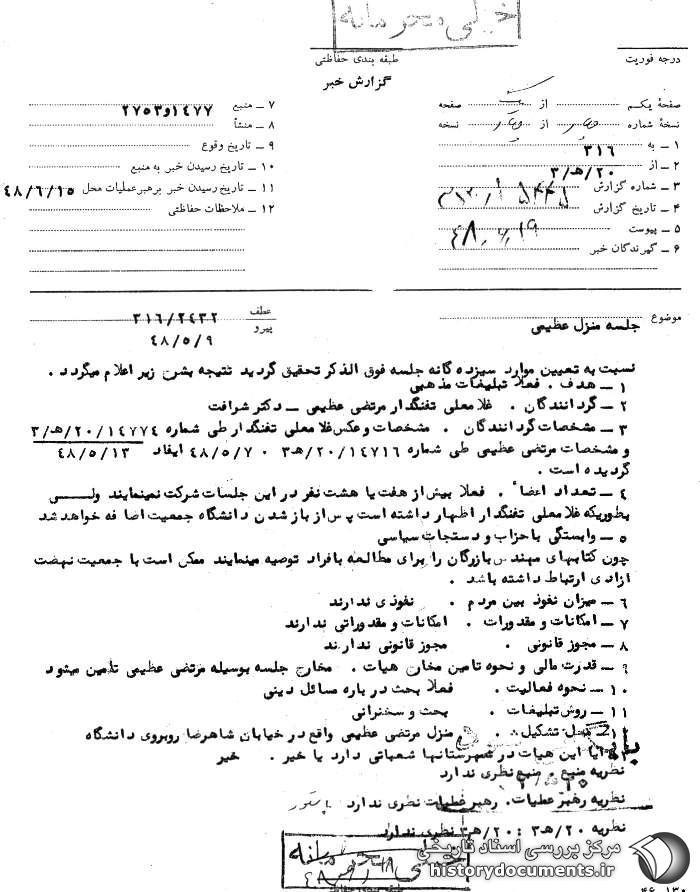 خیلی محرمانه
درجه فوریت
طبقه بندی حفاظتی
گزارش خبر
صفحهٔ یکم از یک صفحه
نسخهٔ شماره از نسخه
۱ ــ به ۳۱۶
۲ ــ از ۲۰/هـ/۳
۳ ــ شماره گزارش
۴ ــ تاریخ گزارش
۵ ــ پیوست
۶ ــ گیرندگان خبر
۷ ــ منبع ۱۴۷۷و۲۷۵۳
۸ ــ منشأ
۹ ــ تاریخ وقوع
۱۰ ــ تاریخ رسیدن خبر به منبع
۱۱ ــ تاریخ رسیدن خبر برهبر عملیات محل ۴۸/۶/۱۵
۱۲ ــ ملاحظات حفاظتی
موضوع جلسه منزل عظیمی
عطف ۳۱۶/۲۴۳۲
پیرو ۴۸/۵/۹
نسبت به تعیین موارد سیزده گانه جلسه فوق الذکر تحقیق گردید نتیجه بشرح زیر اعلام میگردد .
۱ ــ هدف . فعلا تبلیغات مذهبی
۲ ــ گردانندگان . غلامعلی تفنگدار مرتضی عظیمی ــ دکتر شرافت
۳ ــ مشخصات گردانندگان . مشخصات و عکس غلامعلی تفنگدار طی شماره ۲۰/۱۴۷۷۴/هـ/۳
۴۸/۵/۱۳
و مشخصات مرتضی عظیمی طی شماره ۲۰/۱۴۷۱۶/هـ۳ ۴۸/۵/۷۰ ایفاد
گردیده است .
۴ ــ تعداد اعضاء . فعلا بیش از هفت یا هشت نفر در این جلسات شرکت نمینمایند ولــی
بطوریکه غلامعلی تفنگدار اظهار داشته است پس از باز شدن دانشگاه جمعیت اضافه خواهد شد
۵ ــ وابستگی باحزاب و دستجات سیاسی
چون کتابهای مهندس بازرگان را برای مطالعه بافراد توصیه مینمایند ممکن است با جمعیت نهضت
ازادی ارتباط داشته باشد .
۶ ــ میزان نفوذ بین مردم . نفوذی ندارند
۷ ــ امکانات و مقدورات . امکانات و مقدوراتی ندارند
۸ ــ مجوز قانونی . مجوز قانونی ندارند
۹ ــ قدرت مالی و نحوه تامین مخارج هیات . مخارج جلسه بوسیله مرتضی عظیمی تامین میشود
۱۰ ــ نحوه فعالیت . فعلا بحث در باره مسائل دینی
۱۱ ــ روش تبلیغات . بحث و سخنرانی
محل تشکیل . منزل مرتضی عظیمی واقع در خیابان شاهرضا روبروی دانشگاه
ایا این هیات در شهرستانها شعباتی دارد یا خیر . خیر
نظریه منبع . منبع نظری ندارد
نظریه رهبر عملیات . رهبر عملیات نظری ندارد
نظریه ۲۰/هـ۳ : ۲۰/هـ۳ نظری ندارد
خیلی محرمانه
طبقه بندی حفاظتی
مرکز بررسی اسناد تاریخی
historydocuments.ir